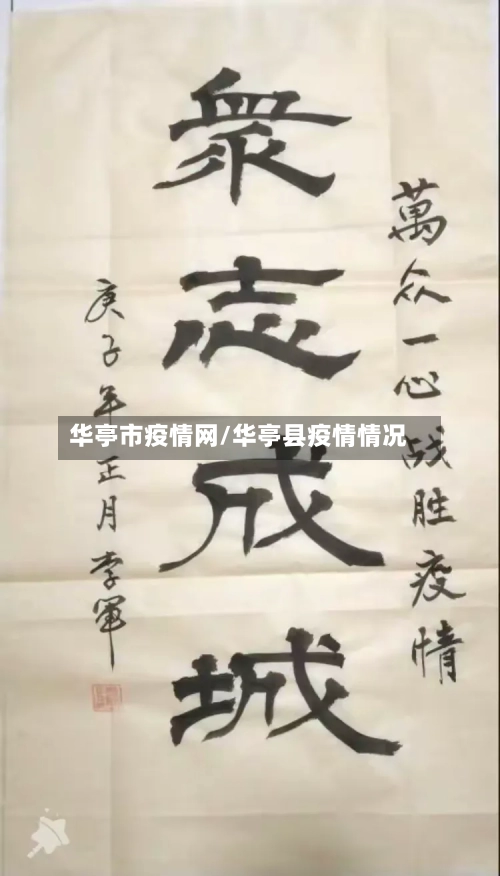 萬众一心战胜疫情
衆志成城
庚子年正月李军
华亭市疫情网/华亭县疫情情况